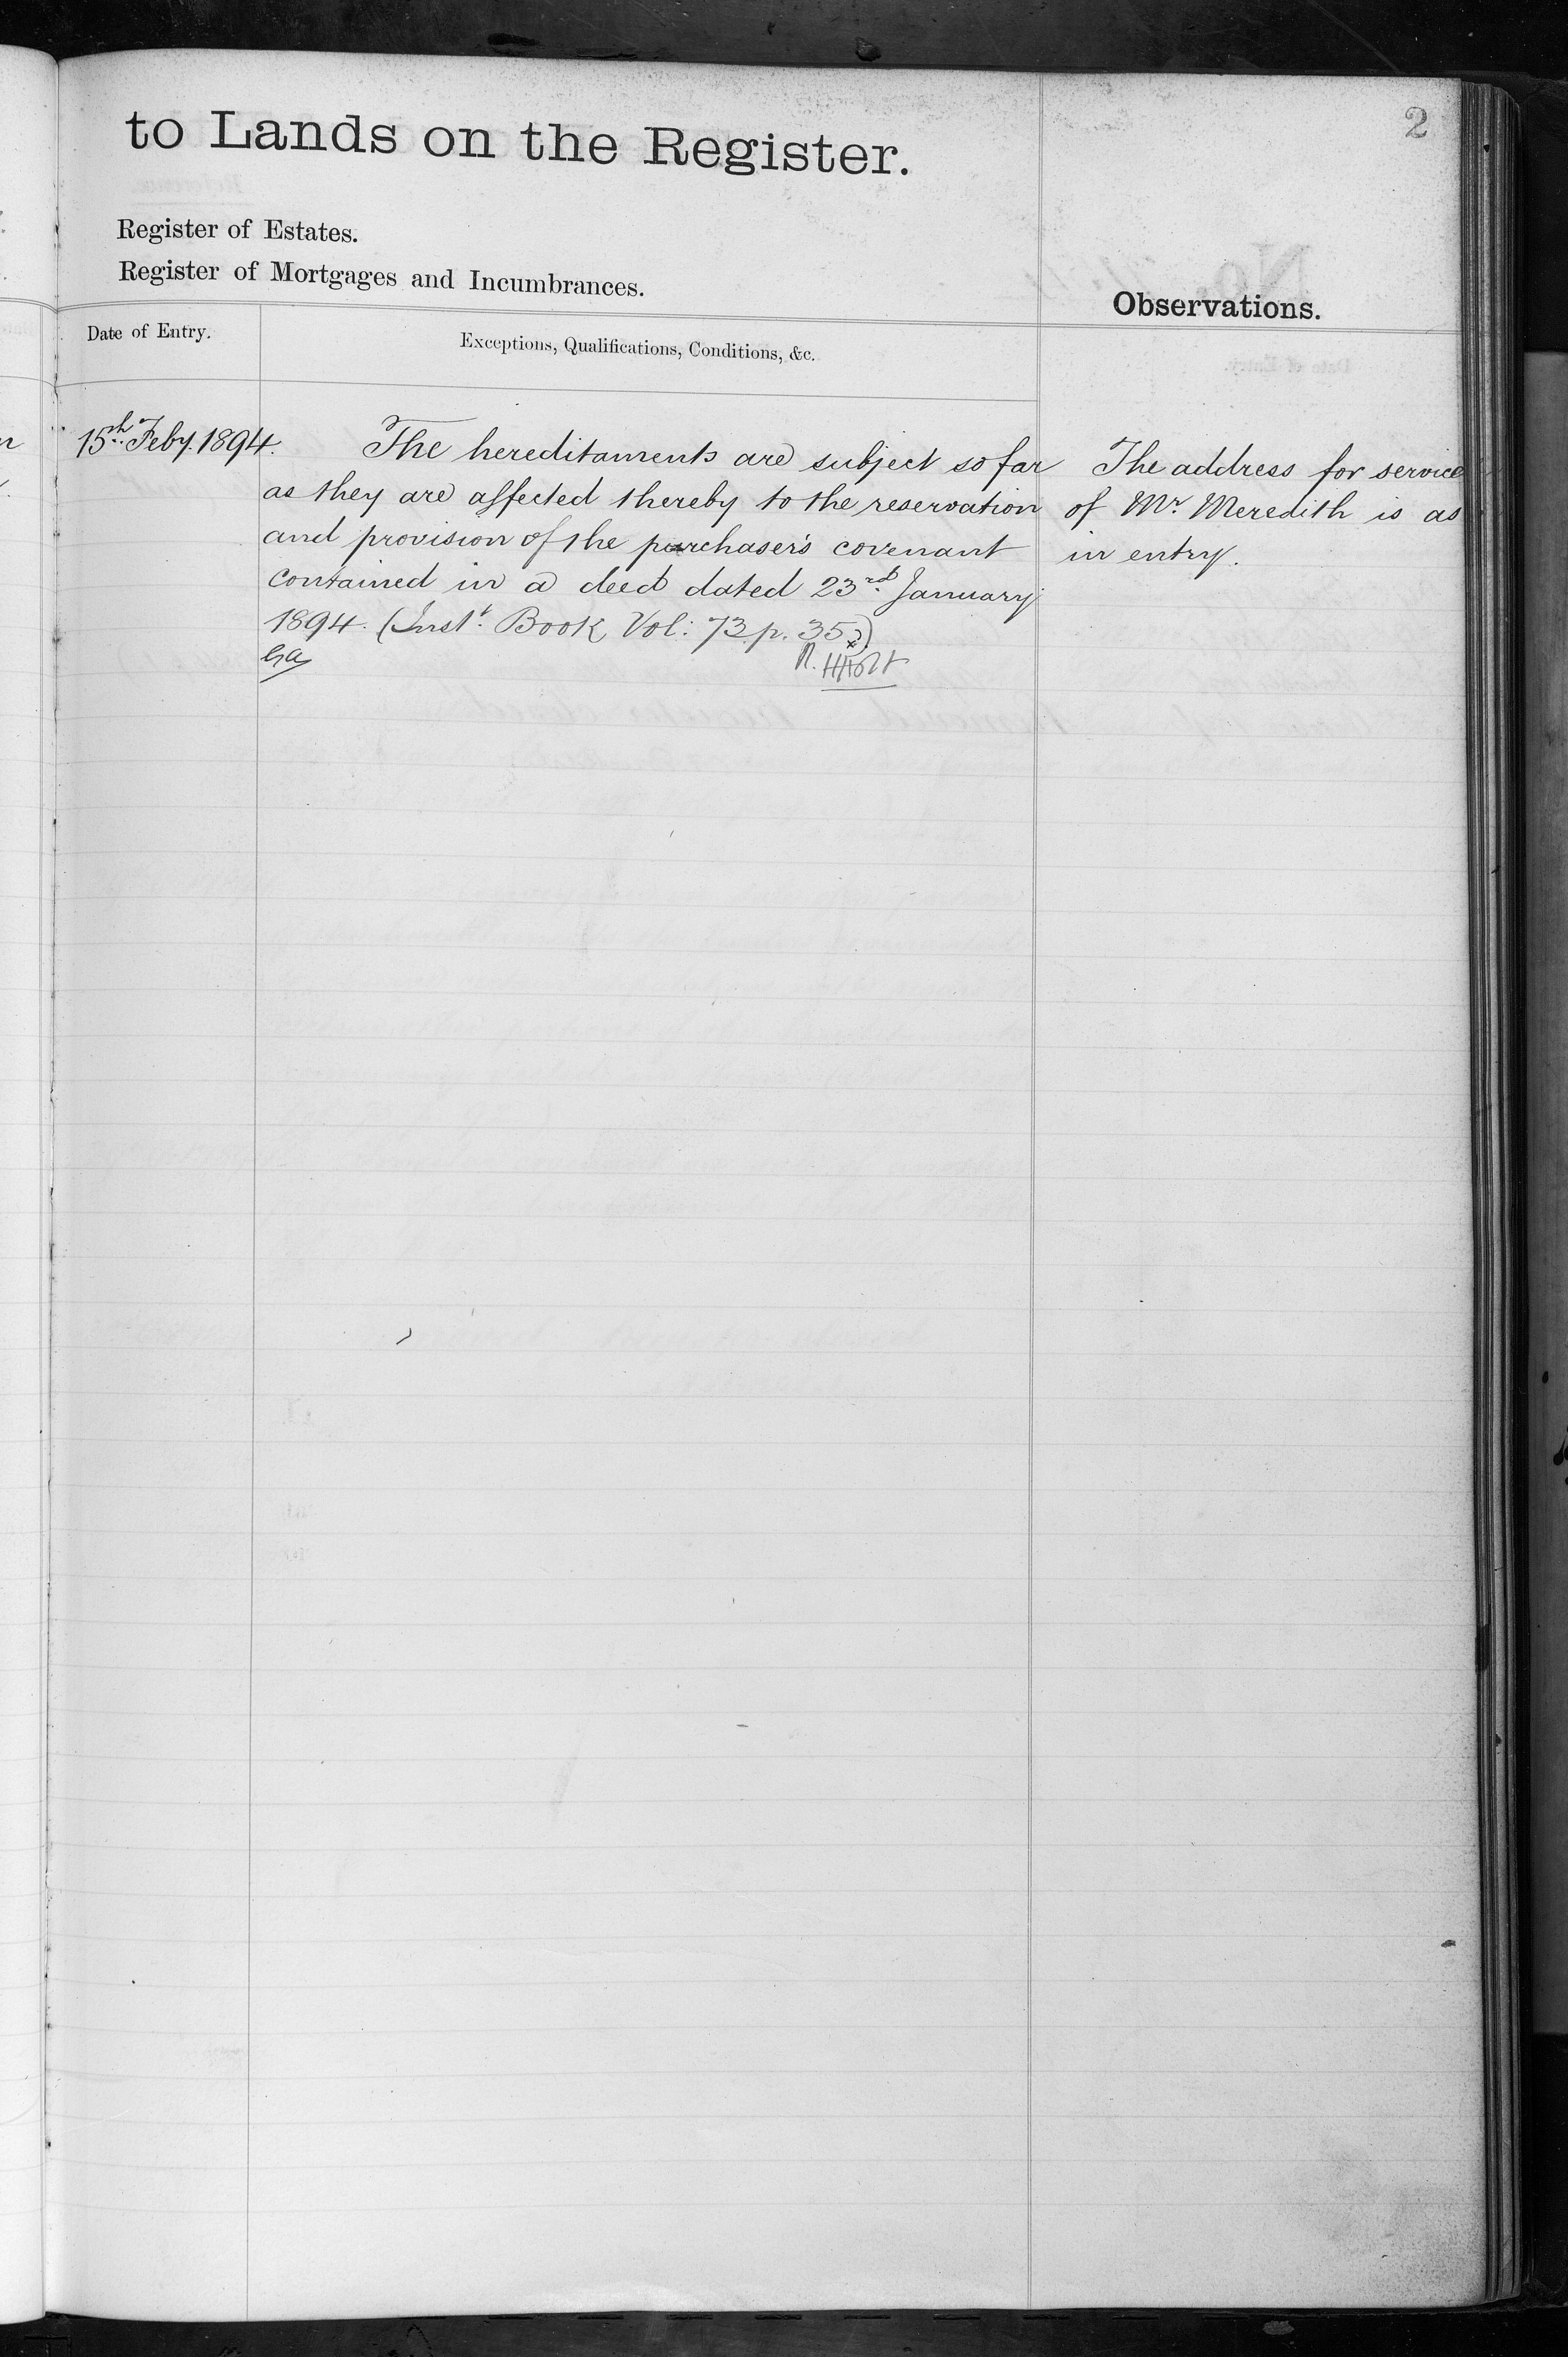 2
to Lands on the Register.
Register of Estates.
Register of Mortgages and Incumbrances.
Observations.
Date of Entry.
Exceptions, Qualifications, Conditions, &c.
15th Feby. 1894.
The hereditaments are subject so far
as they are affected thereby to the reservation
and provision of the purchaser's covenant
contained in a deed dated 23rd January
1894. (Inst. Book Vol: 73 p. 35
The address for service
of Mr. Meredith is as
in entry.